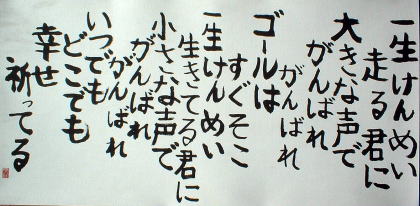 一生けんめい
走る君に
大きな声で
がんばれ
がんばれ
ゴールは
すぐそこ
一生けんめい
生きてる君に
小さな声で
がんばれ
がんばれ
いつでも
どこでも
幸せ
祈ってる